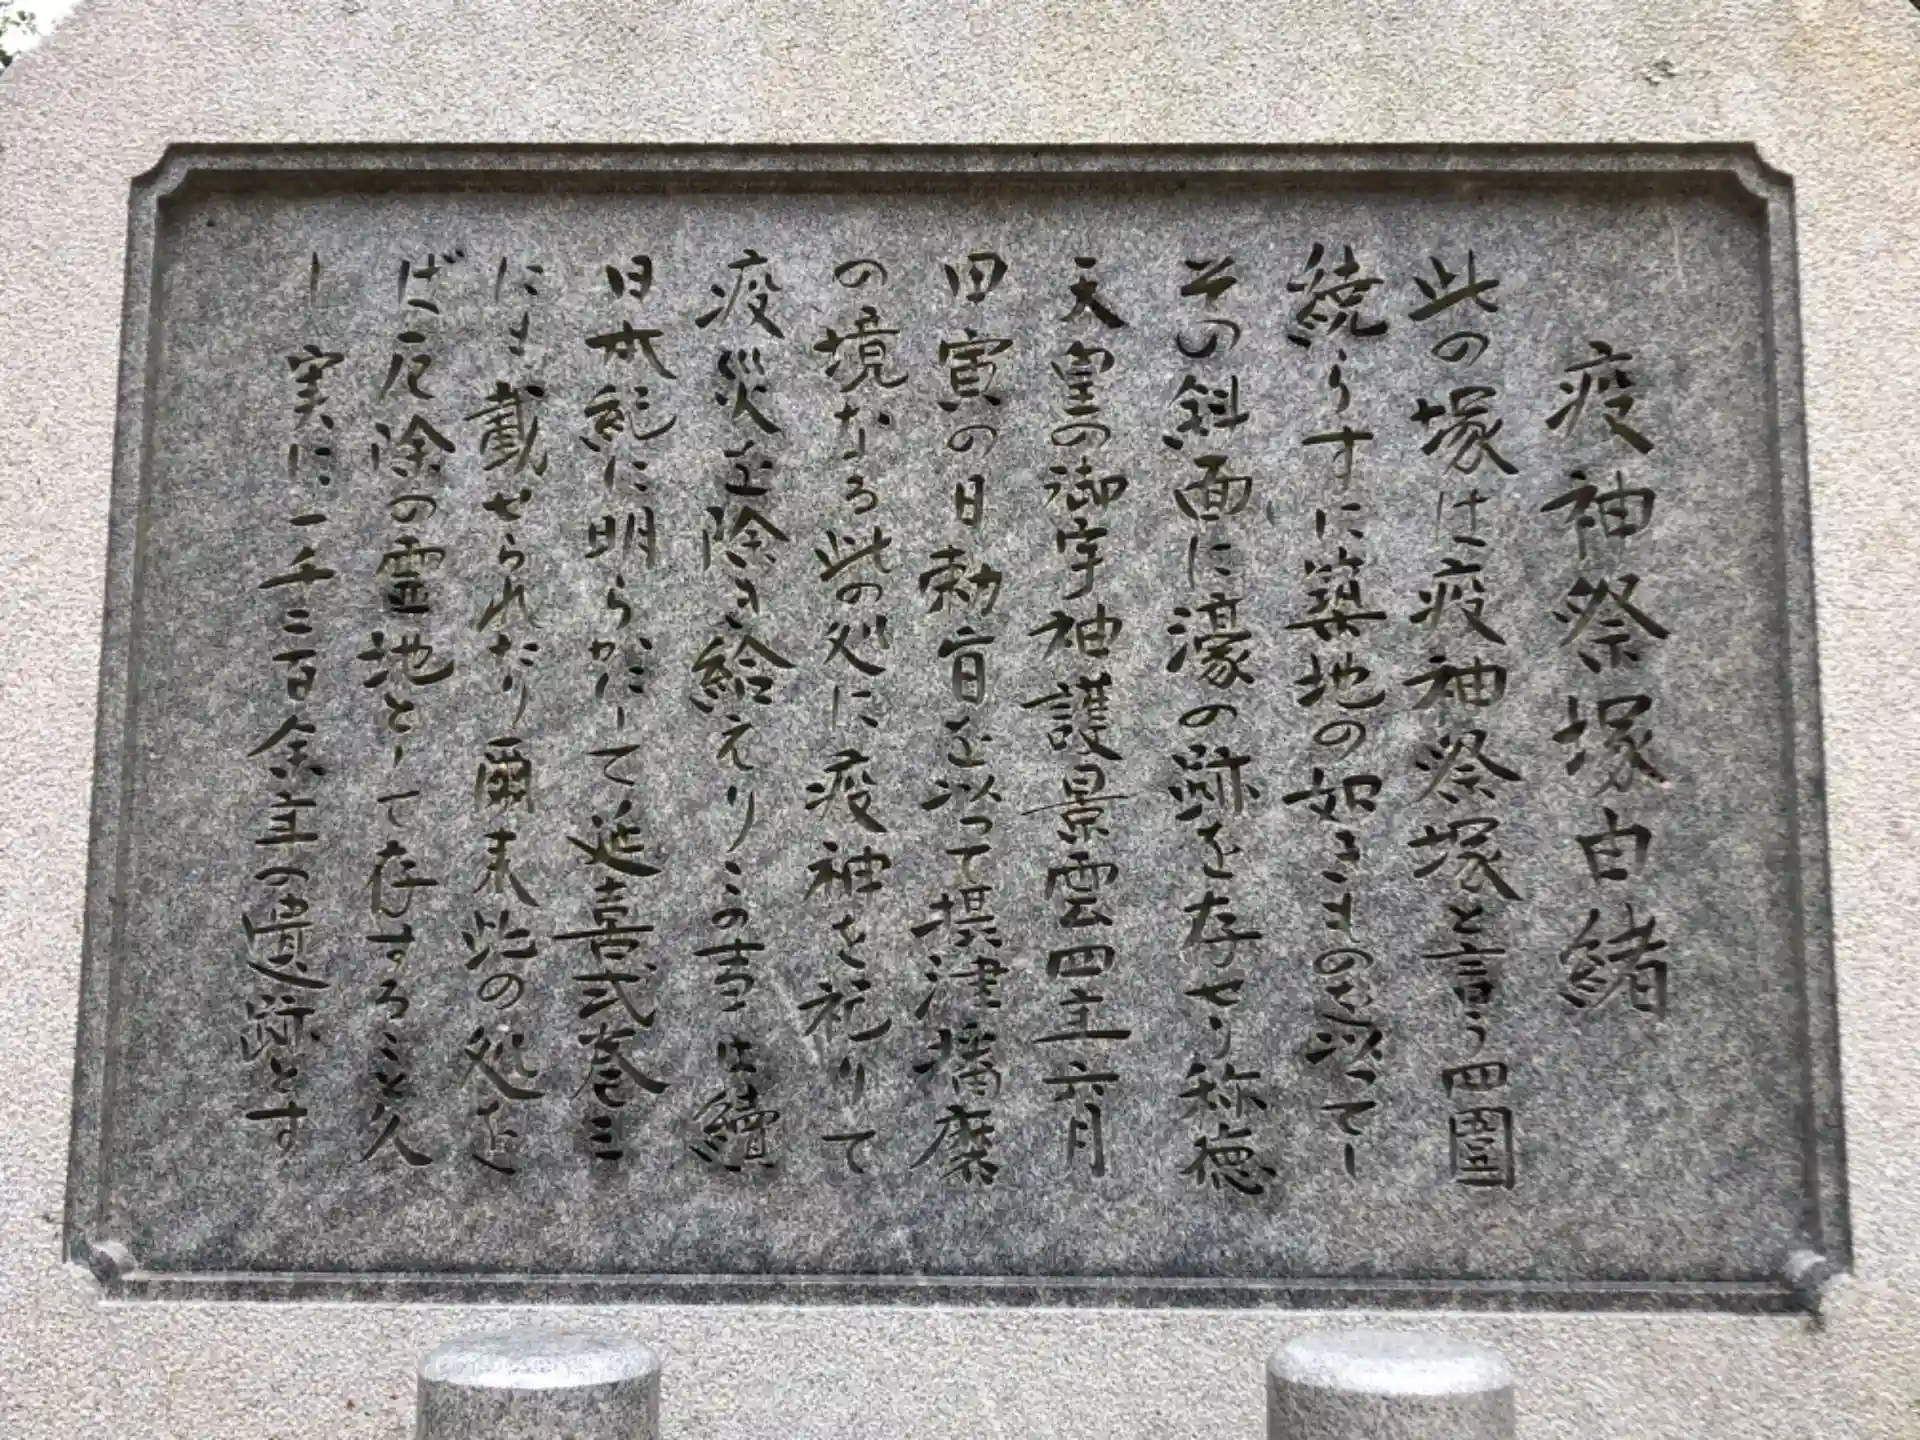 疫神祭塚由緒
此の塚は疫神祭塚と言う四圍
続らすに築地の如きものを以ってし
その斜面に濠の跡を存せり称徳
天皇の御宇神護景雲四年六月
甲寅の日勅旨を以って摂津播磨
の境なる此の処に疫神を祀りて
疫災を除き給えりこの事は續
日本紀に明らかにして延喜式巻三
にも載せられたり爾来此の処を
ば厄除の霊地として存すること久
し実に一千二百余年の遺跡とす